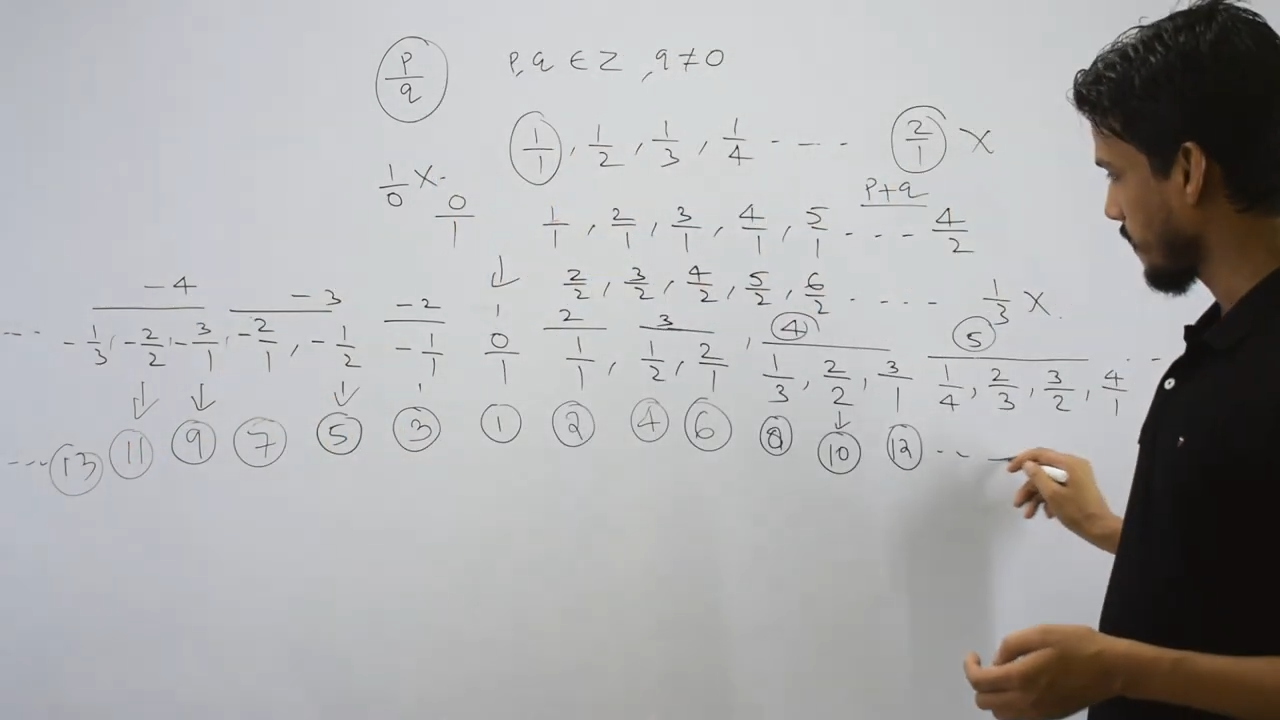 p/q p,q ∈ Z , q ≠ 0
1/1 , 1/2 , 1/3 , 1/4 - - - - 2/1 X
1/0 X. 0/1
1/1 , 2/1 , 3/1 , 4/1 , 5/1 - - - - p+q 4/2
2/2 , 3/2 , 4/2 , 5/2 , 6/2 - - - - 1/3 X.
-4 -3 -2 2 3 4 5
--- -1/3, -2/2, -3/1, -2/1, -1/2 -1/1 0/1 1/1 , 1/2 , 2/1 , 1/3 , 2/2 , 3/1 1/4 , 2/3 , 3/2 , 4/1 - - -
--- 13 11 9 7 5 3 1 2 4 6 8 10 12 - - -